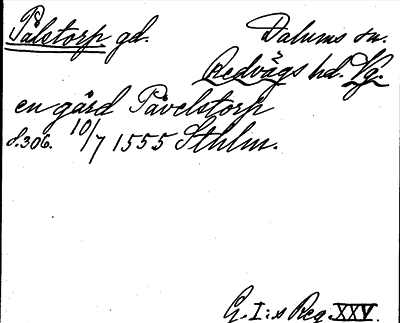 Pålstorp gd. Dalums sn.
Redvägs hd. Vg.
en gård Påvelstorp
s. 306. 10/7 1555 Sthlm.
G. I:s Reg. XXV.